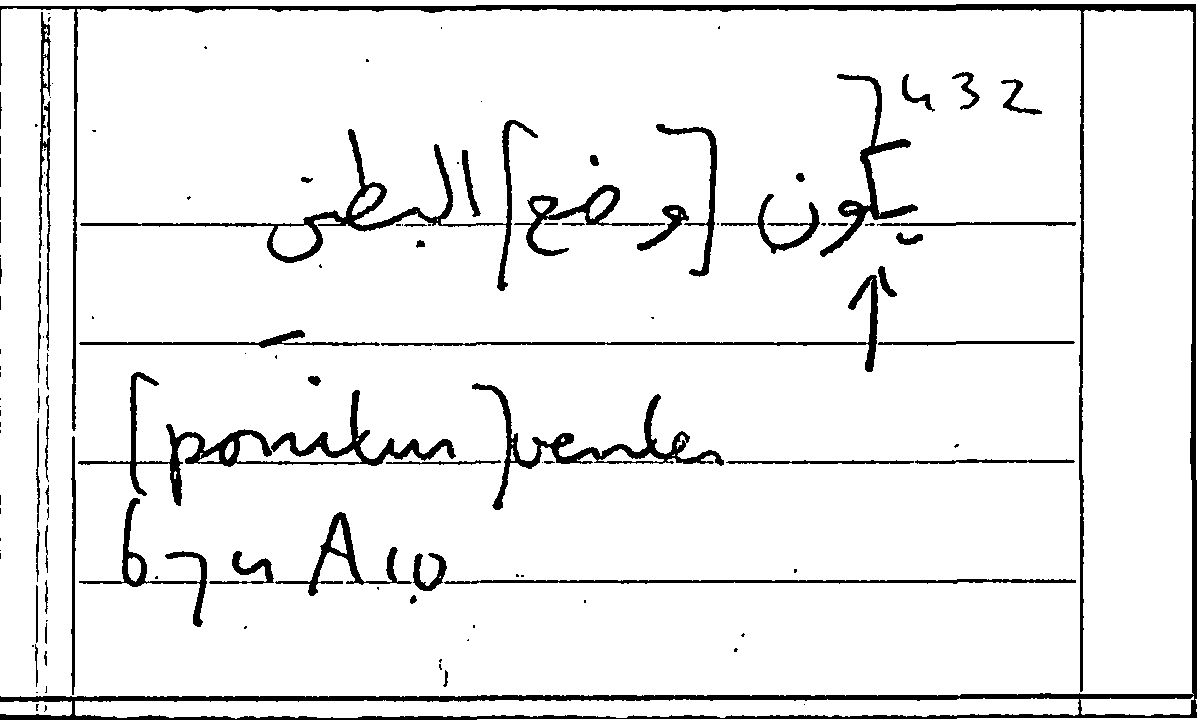 432
يكون [وضع] البطن
[ponitur] venter
674 A 10